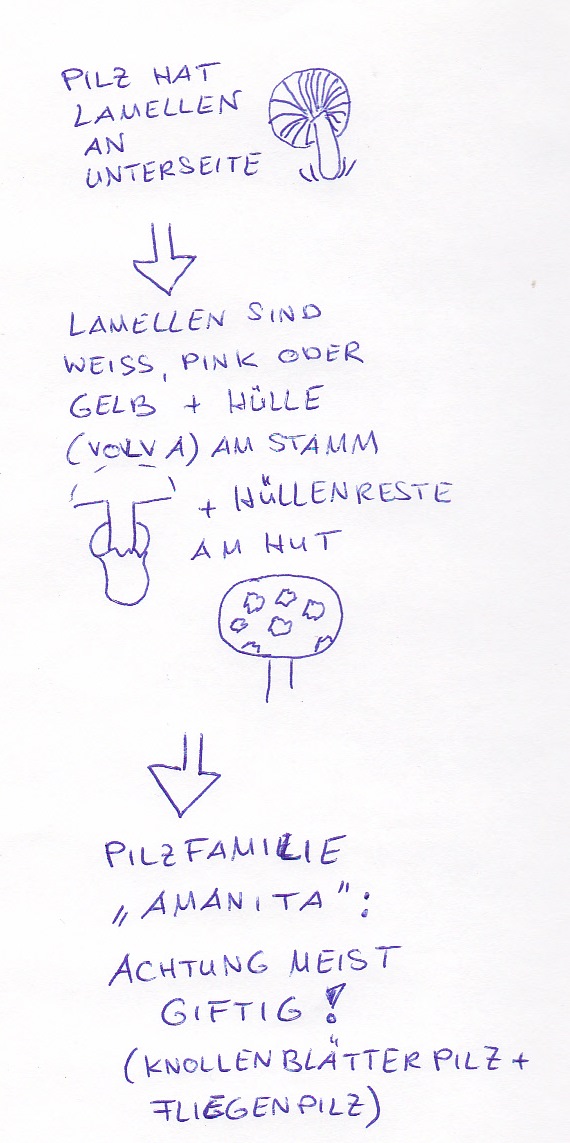 PILZ HAT
LAMELLEN
AN
UNTERSEITE
LAMELLEN SIND
WEISS, PINK ODER
GELB + HÜLLE
(VOLVA) AM STAMM
+ HÜLLENRESTE
AM HUT
PILZFAMILIE
„AMANITA":
ACHTUNG MEIST
GIFTIG!
(KNOLLENBLÄTTERPILZ +
FLIEGENPILZ)